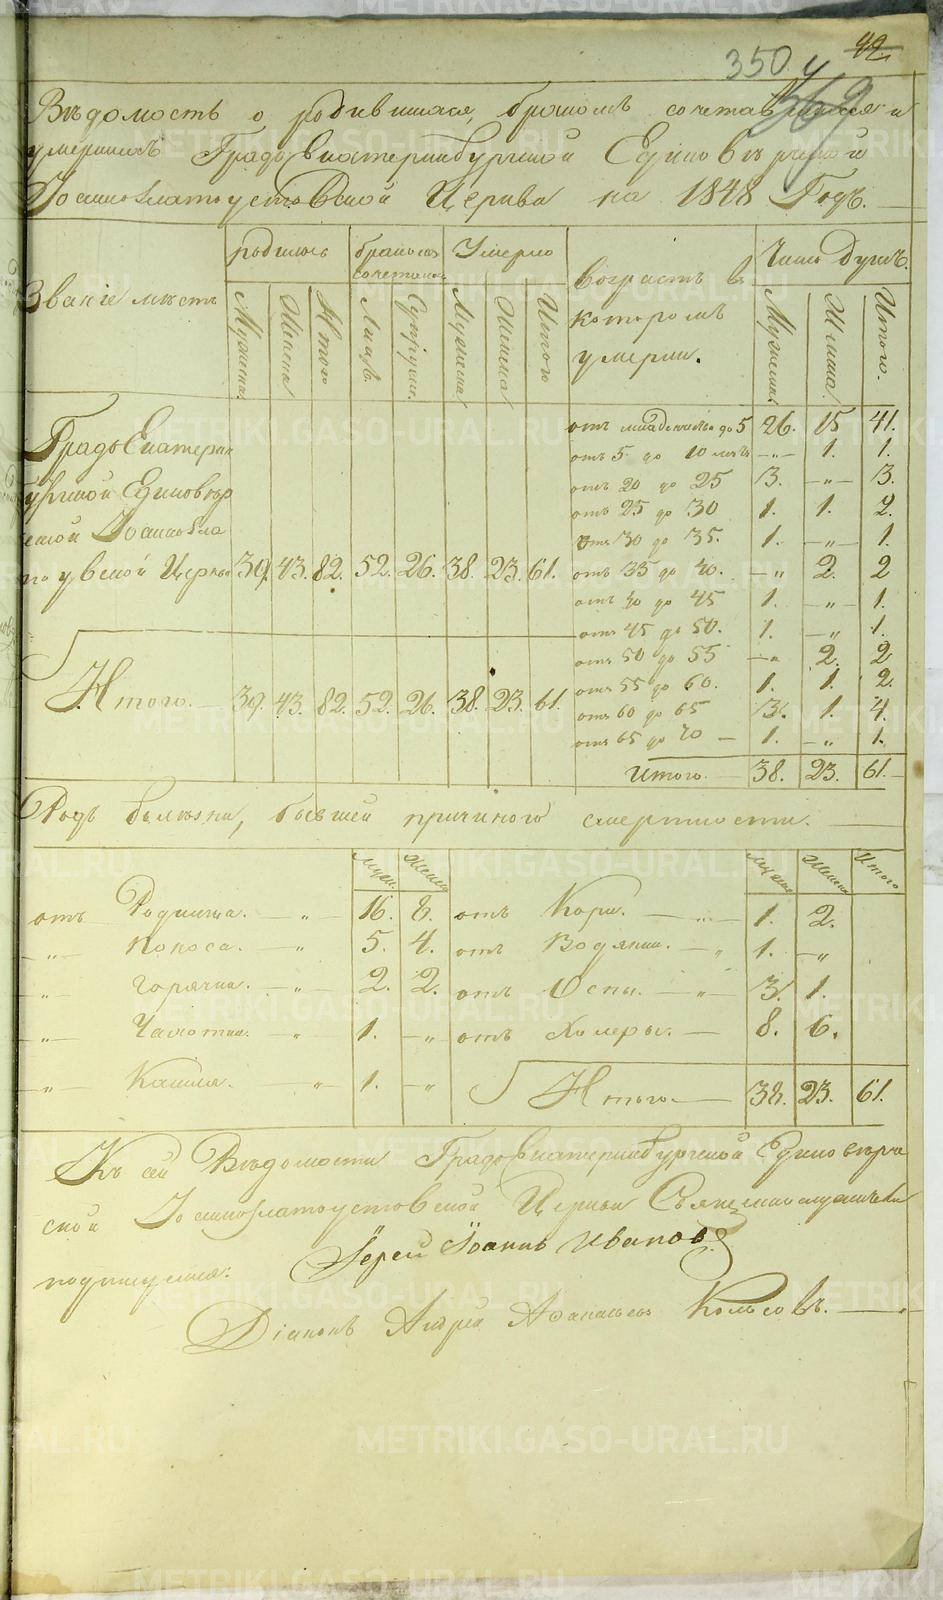 42.
350.
369
Ведомость о родившихся, бракомъ сочетавшихся и
умершихъ Градо Екатеринбургской Единоверческой
Іоанно Златоустовской Церкви на 1848 Годъ.
родилось бракомъ сочетались Умерло Возрастъ в котором умерли. Число Душъ.
Званіе местъ Мужеска Женска Итого Лицъ. Супруж. Мужеска Женска Итого Мужеска Женска Итого.
отъ младенчества до 5 26. 15 41.
Градо Екатерин отъ 5 до 10 летъ —„— 1. 1.
бургской Единовер отъ 20 до 25 3. —„— 3.
отъ 25 до 30 1. 1. 2.
ской Іоанно Зла отъ 30 до 35. 1. —„— 1.
тоустовской Церкви 39. 43. 82. 52. 26. 38. 23. 61. отъ 35 до 40. —„ 2. 2
отъ 40 до 45 1. —„— 1.
отъ 45 до 50. 1. —„ 1.
отъ 50 до 55 —„ 2. 2
отъ 55 до 60. 1. 1. 2.
Итого. 39. 43. 82. 52. 26. 38. 23. 61. отъ 60 до 65 3. 1. 4.
отъ 65 до 70 — 1. —„ 1.
Итого. — 38. 23. 61.
Родъ болезни, бывшей причиною смертности.
Муж. Женск. Мужск. Женска Итого
отъ Родимца. —„ 16. 8. отъ Кори. —„— 1. 2.
—„— Поноса. —„ 5. 4. отъ Водянки. —„ 1. —„
—„— Горячки. —„ 2. 2. отъ Оспы. —„— 3. 1.
—„— Чахотки. —„ 1. —„ отъ Холеры. — 8. 6.
—„— Кашля. —„ 1. —„ Итого. — 38. 23. 61.
Къ сей Ведомости Градо Екатеринбургской Единоверче
ской Іоанно Златоустовской Церкви Священнослужители
подписуемся: Іерей Іоаннъ Ивановъ
Діаконъ Андрей Афанасьевъ Колосовъ.
METRIKI.GASO-URAL.RU